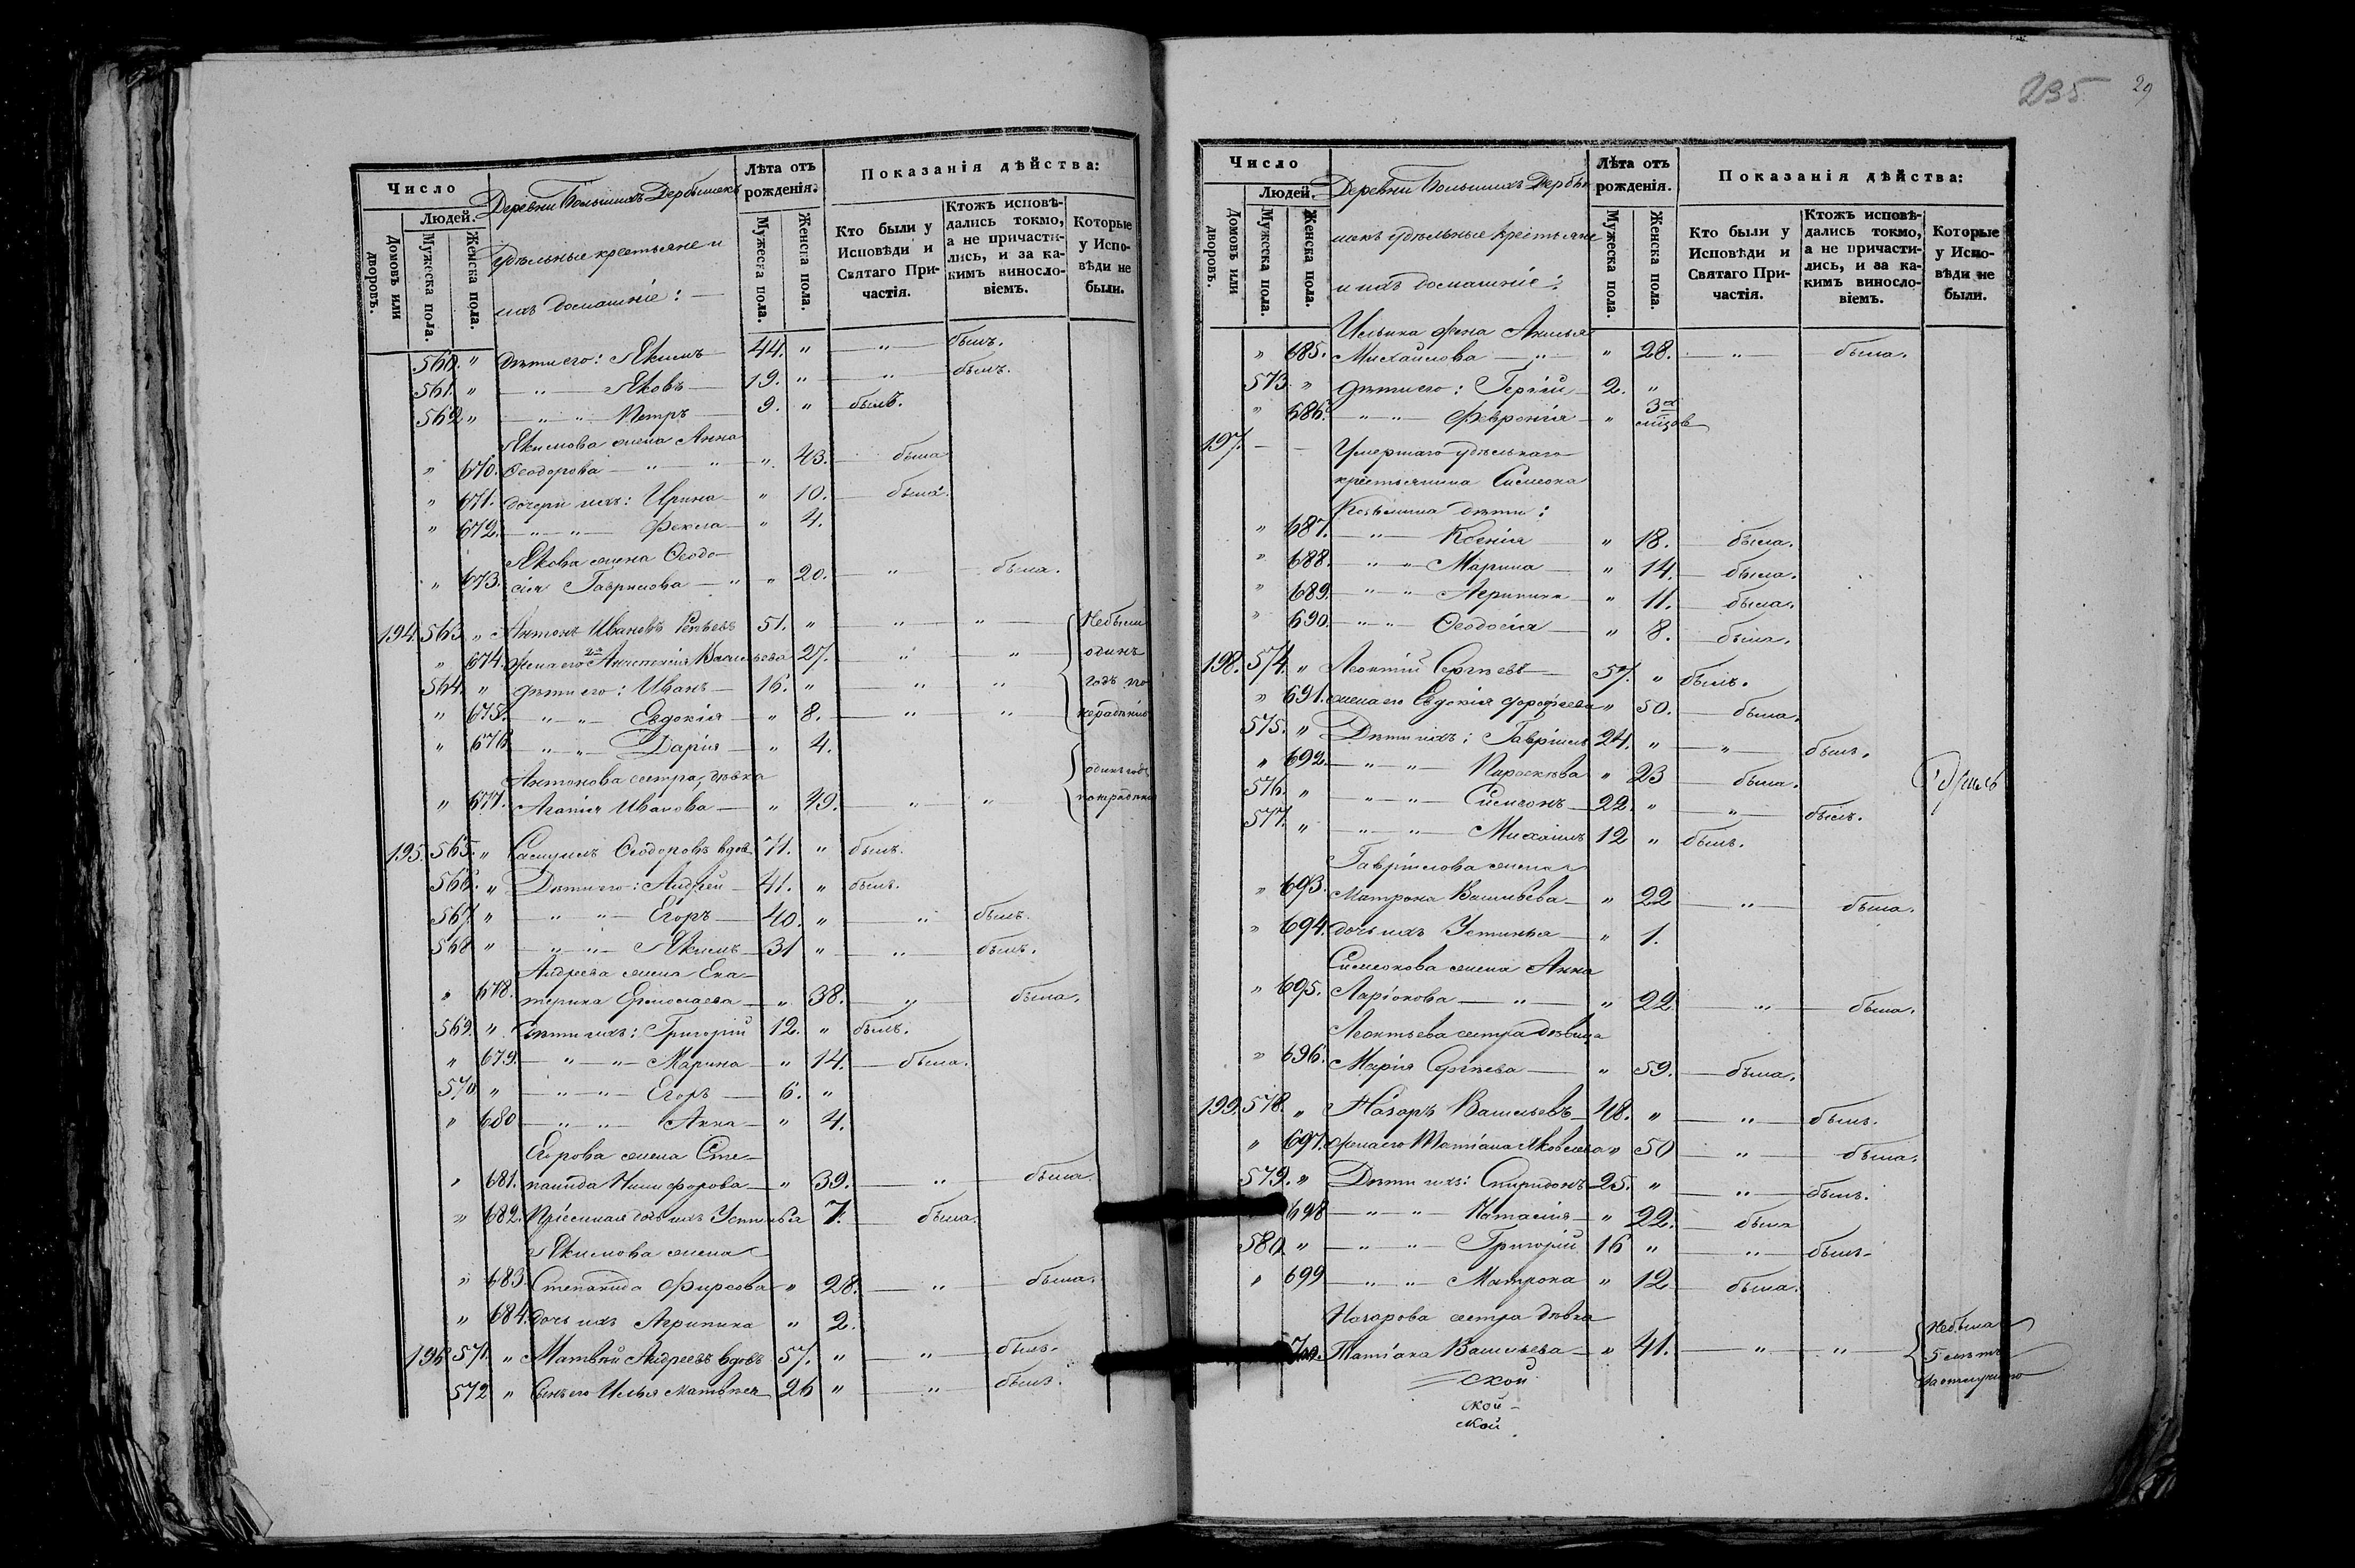 Число
Людей.
Домовъ или дворовъ.
Мужеска пола.
Женска пола.
Деревни Большихъ Дербышекъ
удѣльные крестьяне и
ихъ домашніе: —
Лѣта отъ рожденія.
Мужеска пола.
Женска пола.
Показанія дѣйства:
Кто были у Исповѣди и Святаго Причастія.
Ктожъ исповѣдались токмо, а не причастились, и за какимъ винословіемъ.
Которые у Исповѣди не были.
560. " дѣти его: Якимъ — 44. " — " — былъ.
561. " — " — Яковъ — 19. " — " — былъ.
562 " — " " — Петръ — 9. " — былъ.
Якимова жена Анна
" 670. Ѳеодорова — " — " — " 43. — была
" 671. дочери ихъ: Ирина — " 10. — была.
" 672. — " — " — Фекла — " 4.
Якова жена Ѳеодо-
" 673. сія Гаврилова — " " 20. — " — была.
194 563 " Антонъ Ивановъ 51. " — " — " — Небыли
" 674. жена его 2я Анастасія Васильева 27. — " — " одинъ
564. " дѣти его: Иванъ — 16. " — " — " годъ по
" 675. — " " — Евдокія — " 8. — " — " нерадѣнію
" 676 — " " — Дарія — " 4.
Антонова сестра, дѣвка одинъ годъ
" 677. Агапія Иванова — " 49. — " — " по нерадѣнію
195. 565. " Самуилъ Ѳеодоровъ вдов 71. " былъ.
566. " Дѣти его: Андрей — 41. " былъ.
567. " — " " — Егоръ — 40. " — " — былъ.
568 " — " " — Якимъ — 31 " — " — былъ.
Андреева жена Ека-
" 678. терина Ермолаева — " 38. — " — была.
569. " дѣти ихъ: Григорій 12. " былъ.
" 679. — " — " — Марина — " 14. — была.
570 " — " " — Егоръ — 6. "
" 680 — " " — Анна — " 4.
Егорова жена Сте-
" 681. панида Никифорова — " 39. — " — была.
" 682. Пріемная дочь ихъ Устинья 7. — была.
Якимова жена
" 683 Степанида Фирсова " 28. — " — была.
" 684. дочь ихъ Агрипина " 2.
196 571. " Матвѣй Андреевъ вдовъ 57. " — " — былъ.
572 " Сынъ его Илья Матвѣев 26 " — " — былъ.
235 29
Число
Людей.
Домовъ или дворовъ.
Мужеска пола.
Женска пола.
Деревни Большихъ Дербы-
шекъ удѣльные крестьяне
и ихъ домашніе:
Лѣта отъ рожденія.
Мужеска пола.
Женска пола.
Показанія дѣйства:
Кто были у Исповѣди и Святаго Причастія.
Ктожъ исповѣдались токмо, а не причастились, и за какимъ винословіемъ.
Которые у Исповѣди не были.
Ильина жена Акилина
" 685. Михайлова — " — " 28. — " — была.
573 " дѣти его: Сергій — 2. "
" 686. — " " — Февронія — " 3х мѣсяцовъ
197. — — Умершаго удѣльнаго
крестьянина Симеона
Козьмина дѣти:
" 687. — " — Ксенія — " 18. — была.
" 688. — " " — Марина — " 14. — была.
" 689. — " " — Агрипина — " 11. — была.
" 690. — " " — Ѳеодосія — " 8. — была.
198. 574. " Леонтій Сергѣевъ — 57. " былъ.
" 691. жена его Евдокія Дорофеева " 50. — была.
575. " Дѣти ихъ: Гавріилъ 24. " — " — былъ.
" 692. — " " — Параскева " 23 — была.
576. " — " " — Симеонъ — 22. " — " — былъ.
577. " — " " — Михаилъ 12 " былъ.
Гавріилова жена
" 693. Матрона Васильева — " 22 — " — была.
" 694. дочь ихъ Устинья — " 1.
Симеонова жена Анна
" 695. Ларіонова — " — " 22 — " — была.
Леонтьева сестра дѣвица
" 696. Марія Сергѣева — " 59. — была.
199. 578. " Назаръ Васильевъ — 48. " — " — былъ.
" 697. жена его Татіана Яковлева " 50 — " — была.
579. " Дѣти ихъ: Спиридонъ 25. " — " — былъ.
698 — " " — Наталія — " 22. — была
580 " — " " — Григорій 16 " — " — былъ.
" 699 — " " — Матрона " 12 — была.
Назарова сестра дѣвка
700. Татіана Васильева — " 41. — " — " — Небыла
5 лѣтъ
за отлучкою
ской
ской
ской